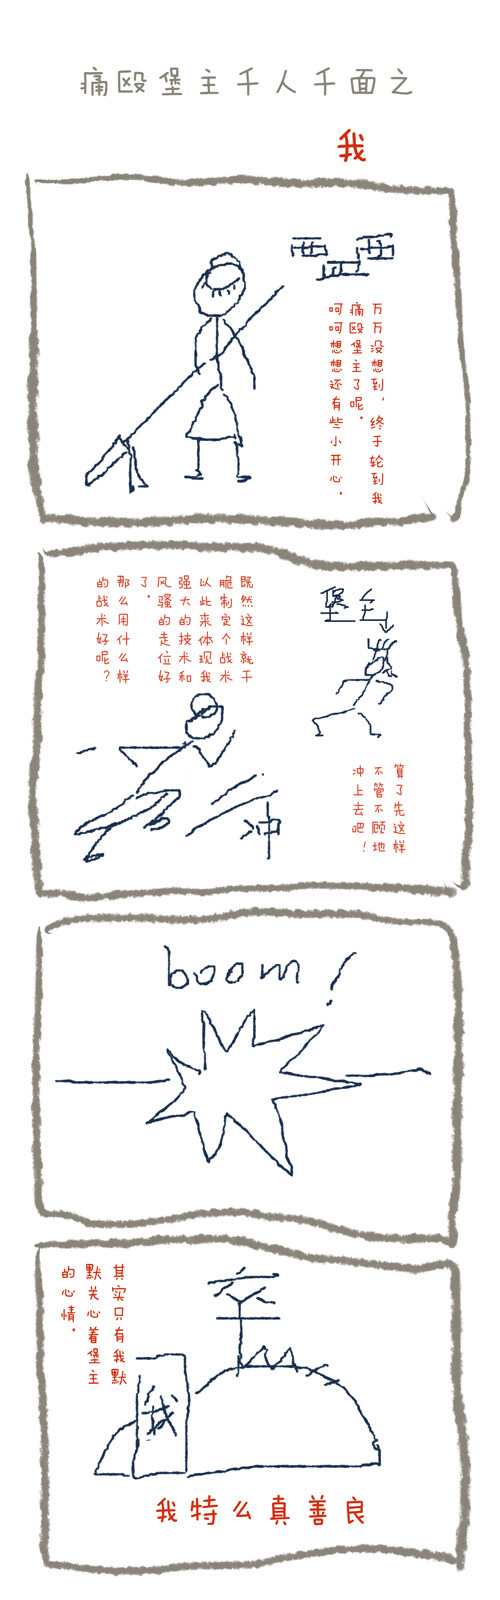 痛殴堡主千人千面之
我
万万没想到，终于轮到我
痛殴堡主了呢。
呵呵想想还有些小开心。
既然这样就干
脆制定个战术
以此来体现我
强大的技术和
风骚的走位好
了。
那么用什么样
的战术好呢？
堡主
算了先这样
不管不顾地
冲上去吧！
冲
boom!
其实只有我默
默关心着堡主
的心情。
卒
我
我特么真善良